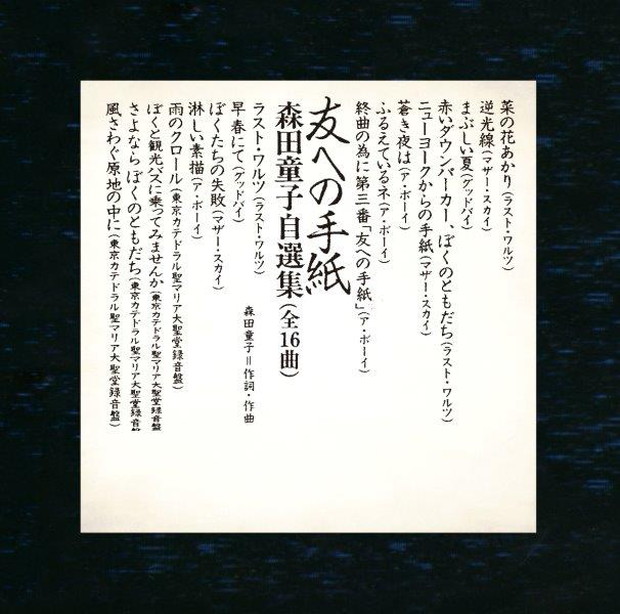 菜の花あかり(ラスト・ワルツ)
逆光線(マザー・スカイ)
まぶしい夏(グッドバイ)
赤いダウンパーカー、ぼくのともだち(ラスト・ワルツ)
ニューヨークからの手紙(マザー・スカイ)
蒼き夜は(ア・ボーイ)
ふるえているネ(ア・ボーイ)
終曲の為に第三番「友への手紙」(ア・ボーイ)
友への手紙
森田童子自選集(全16曲)
森田童子=作詞・作曲
ラスト・ワルツ(ラスト・ワルツ)
早春にて(グッドバイ)
ぼくたちの失敗(マザー・スカイ)
淋しい素描(ア・ボーイ)
雨のクロール(東京カテドラル聖マリア大聖堂録音盤)
ぼくと観光バスに乗ってみませんか(東京カテドラル聖マリア大聖堂録音盤)
さよなら ぼくのともだち(東京カテドラル聖マリア大聖堂録音盤)
風さわぐ原地の中に(東京カテドラル聖マリア大聖堂録音盤)